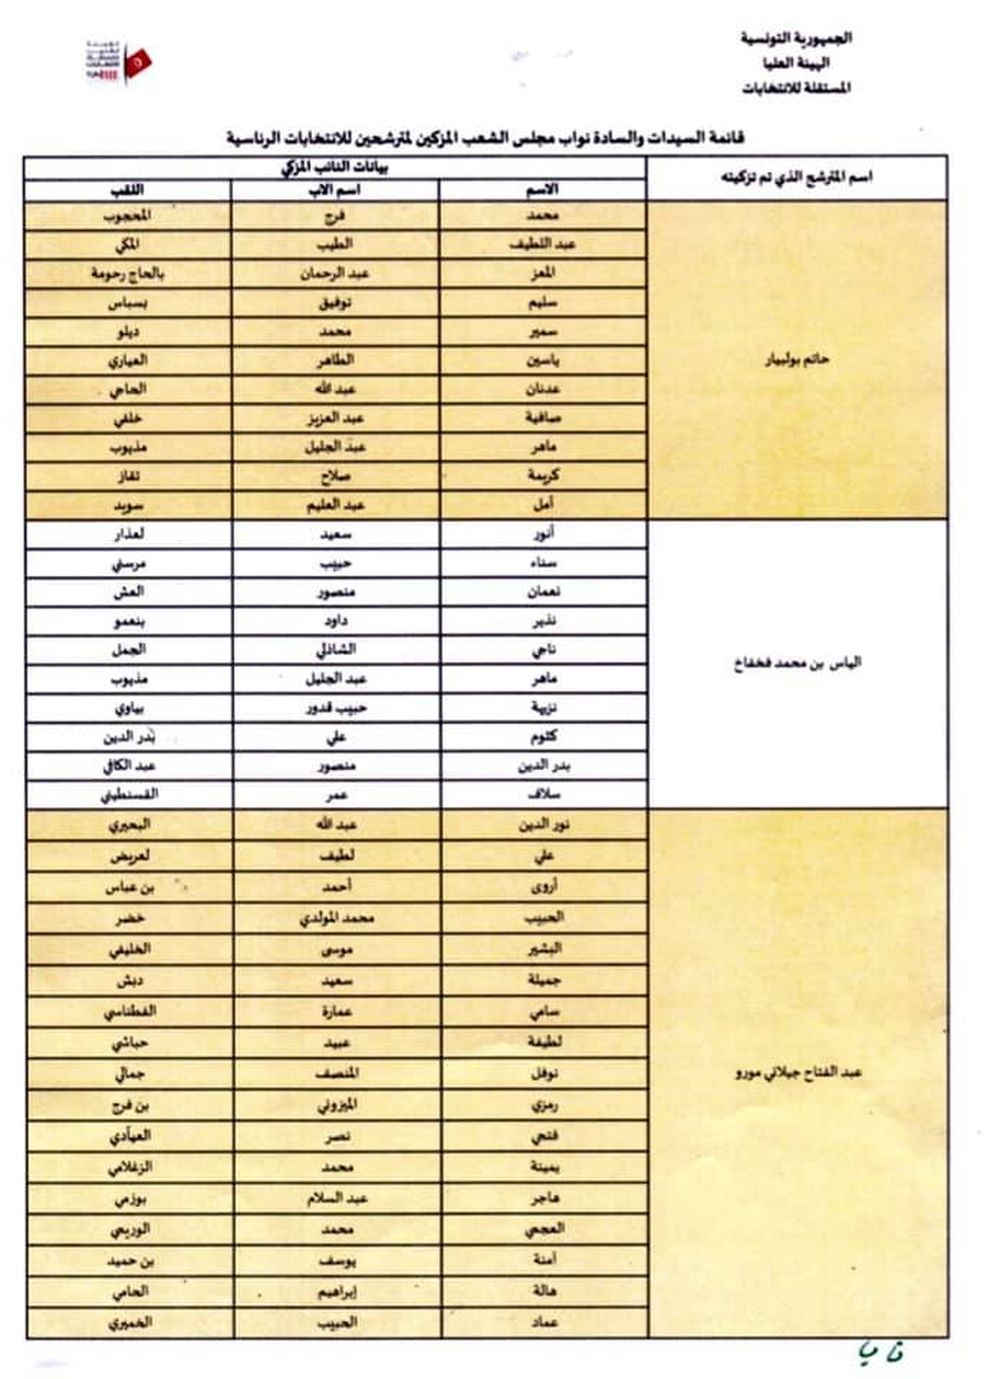 الجمهورية التونسية
الهيئة العليا
المستقلة للانتخابات
قائمة السيدات والسادة نواب مجلس الشعب المزكين لمترشحين للانتخابات الرئاسية
اسم المترشح الذي تم تزكيته
بيانات النائب المزكي
الاسم اسم الاب اللقب
حاتم بولبيار
محمد فرج المحجوب
عبد اللطيف الطيب المكي
المعز عبد الرحمان بالحاج رحومة
سليم توفيق بسباس
سمير محمد ديلو
ياسين الطاهر العياري
عدنان عبد الله الحاجي
صافية عبد العزيز خلفي
ماهر عبد الجليل مذيوب
كريمة صلاح تقاز
أمل عبد العليم سويد
الياس بن محمد فخفاخ
أنور سعيد لعذار
سناء حبيب مرسني
نعمان منصور العش
نذير داود بنعمو
ناجي الشاذلي الجمل
ماهر عبد الجليل مذيوب
نزيهة حبيب قدور بياوي
كلثوم علي بدر الدين
بدر الدين منصور عبد الكافي
سلاف عمر القسنطيني
عبد الفتاح جيلاني مورو
نور الدين عبد الله البحيري
علي لطيف لعريض
أروى أحمد بن عباس
الحبيب محمد المولدي خضر
البشير موسى الخليفي
جميلة سعيد دبش
سامي عمارة الفطناسي
لطيفة عبيد حباشي
نوفل المنصف جمالي
رمزي الميزوني بن فرج
فتحي نصر العيادي
يمينة محمد الزغلامي
هاجر عبد السلام بوزمي
العجمي محمد الوريمي
آمنة يوسف بن حميد
هالة إبراهيم الحامي
عماد الحبيب الخميري